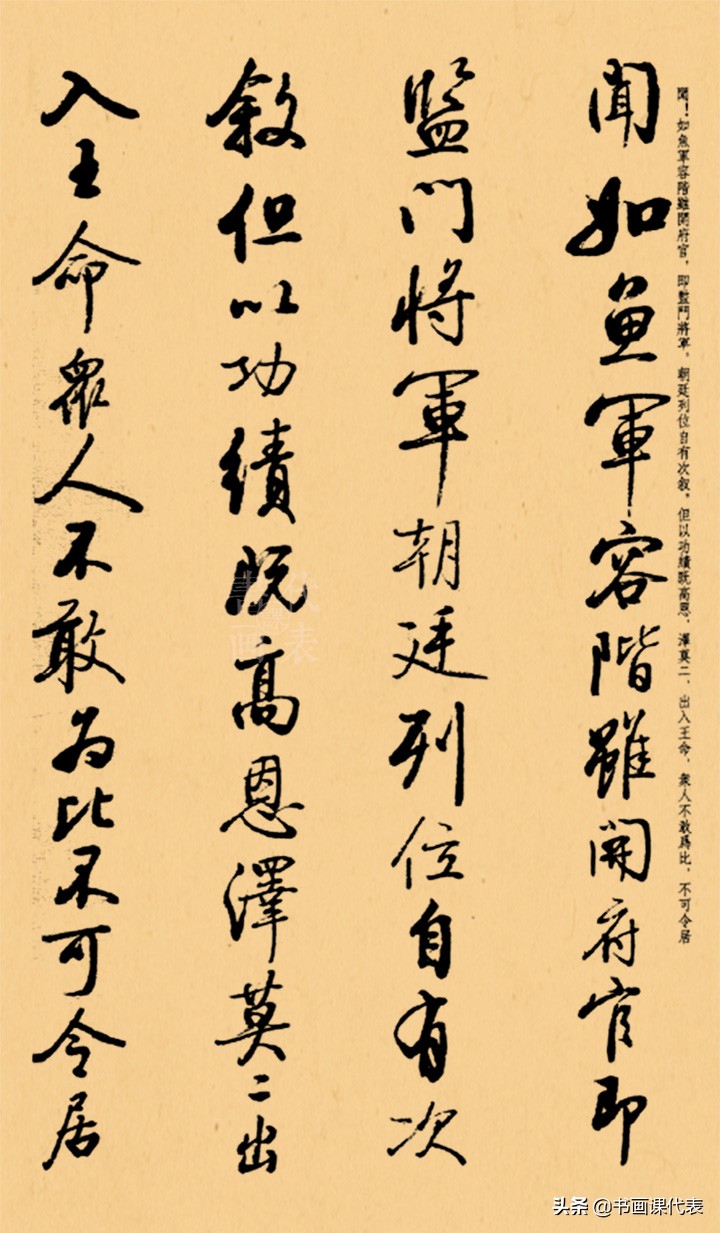 聞！如魚軍容階雖開府官，即監門將軍，朝廷列位自有次叙。但以功績既高恩，澤莫二，出入王命，衆人不敢爲比，不可令居
聞如魚軍容階雖開府官即
監門将軍朝廷列位自有次
叙但以功績既高恩澤莫二出
入王命衆人不敢为比不可令居
头条 @书画课代表